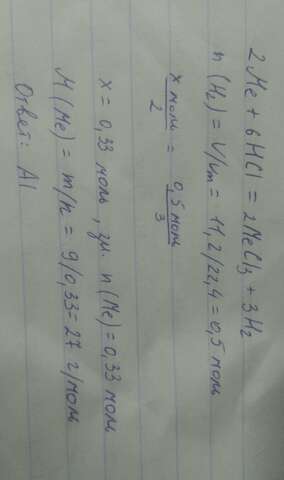 2Me + 6HCl = 2MeCl3 + 3H2
n(H2) = V/Vm = 11,2/22,4 = 0,5 моль
x моль/2 = 0,5 моль/3
x = 0,33 моль, зн. n(Me) = 0,33 моль
M(Me) = m/n = 9/0,33 = 27 г/моль
Ответ: Al